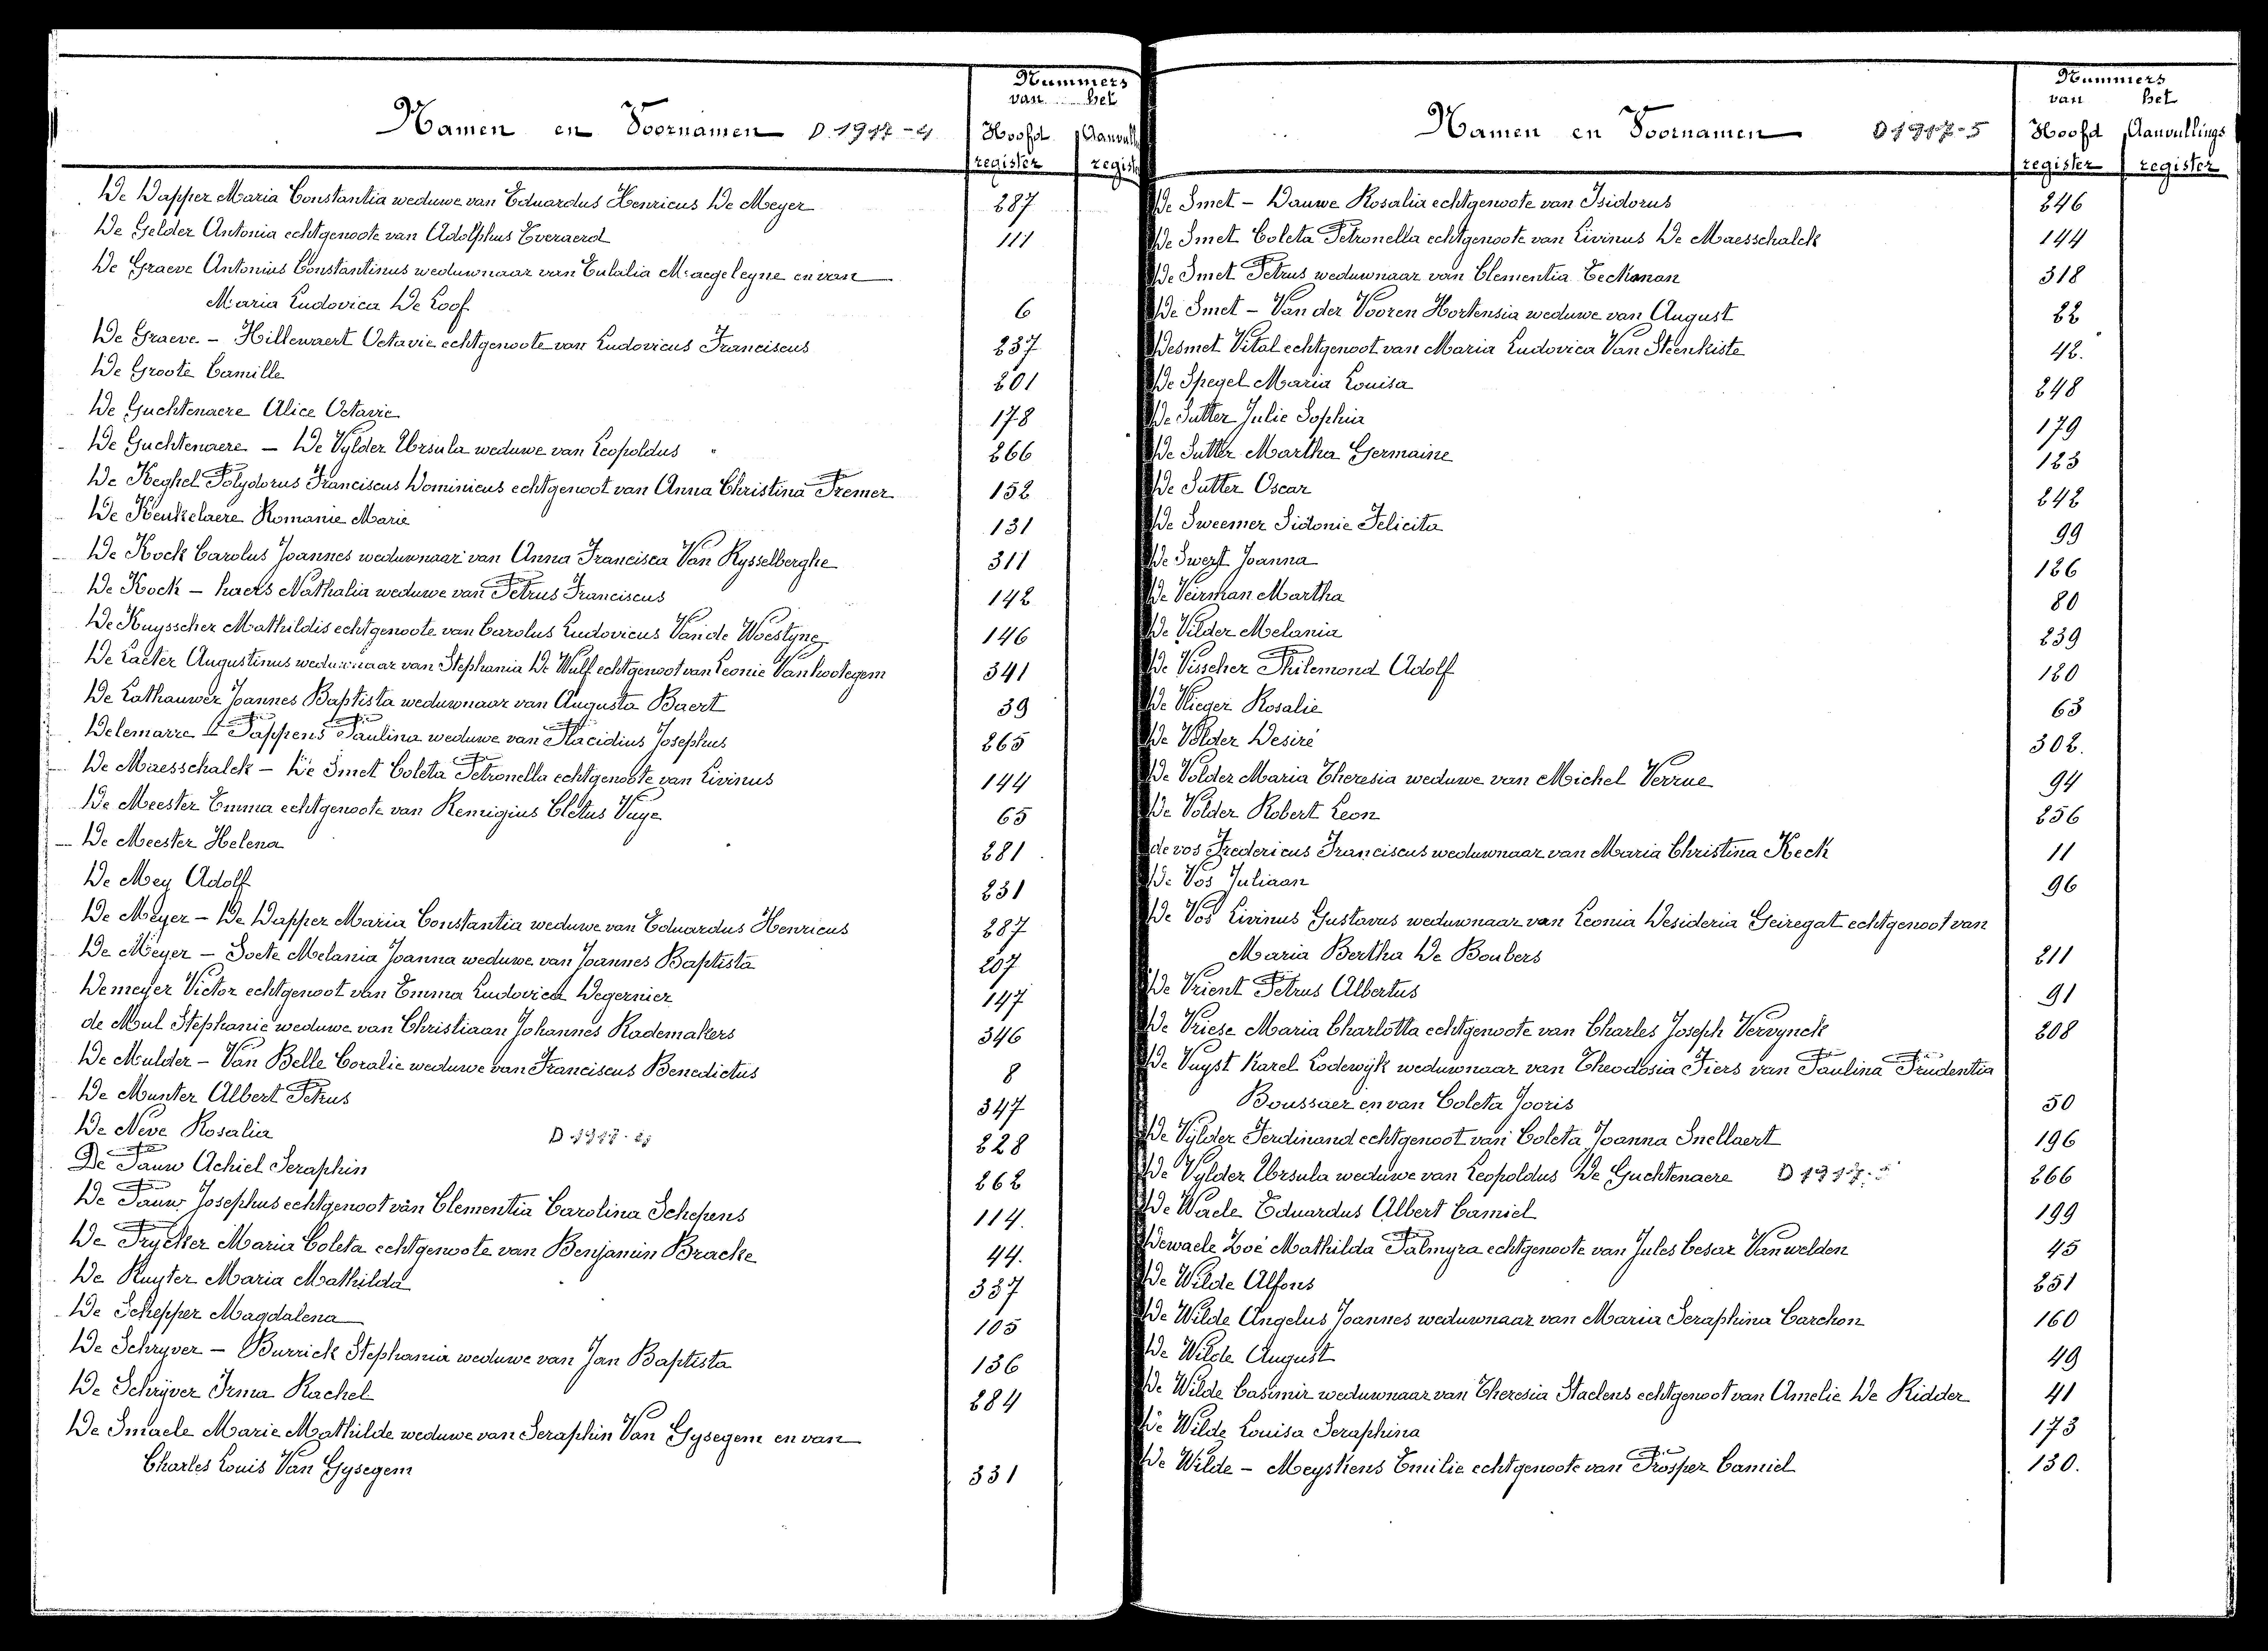 Namen en Voornamen D. 1917-4
Nummers
van het
Hoofd register
Aanvull regist
De Dapper Maria Constantia weduwe van Eduardus Henricus De Meyer 287
De Gelder Antonia echtgenoote van Adolphus Everaerd 111
De Graeve Antonius Constantinus weduwnaar van Eulalia Maegeleyne en van
Maria Ludovica De Loof 6
De Graeve - Hillewaert Octavie echtgenoote van Ludovicus Franciscus 237
De Groote Camille 201
De Guchtenaere Alice Octavie 178
De Guchtenaere - De Vylder Ursula weduwe van Leopoldus 266
De Keghel Polydorus Franciscus Dominicus echtgenoot van Anna Christina Premer 152
De Keukelaere Romanie Marie 131
De Kock Carolus Joannes weduwnaar van Anna Francisca Van Rysselberghe 311
De Kock - haers Nathalia weduwe van Petrus Franciscus 142
De Kuysscher Mathildis echtgenoote van Carolus Ludovicus Van de Woestyne 146
De Laeter Augustinus weduwnaar van Stephania De Wulf echtgenoot van Leonie Vanhootegem 341
De Lathauwer Joannes Baptista weduwnaar van Augusta Baert 39
Delemarre - Pappens Paulina weduwe van Placidius Josephus 265
De Maesschalck - De Smet Coleta Petronella echtgenoote van Livinus 144
De Meester Emma echtgenoote van Remigius Cletus Vuye 65
De Meester Helena 281
De Mey Adolf 231
De Meyer - De Dapper Maria Constantia weduwe van Eduardus Henricus 287
De Meyer - Soete Melania Joanna weduwe van Joannes Baptista 207
Demeyer Victor echtgenoot van Emma Ludovica Degernier 147
de Mul Stephanie weduwe van Christiaan Johannes Rademakers 346
De Mulder - Van Belle Coralie weduwe van Franciscus Benedictus 8
De Munter Albert Petrus 347
De Neve Rosalia D-1917- 228
De Pauw Achiel Seraphin 262
De Pauw Josephus echtgenoot van Clementia Carolina Schepens 114.
De Prycker Maria Coleta echtgenoote van Benjamin Bracke 44.
De Ruyter Maria Mathilda 337
De Schepper Magdalena 105
De Schryver - Burrick Stephania weduwe van Jan Baptista 136
De Schryver Irma Rachel 284
De Smaele Marie Mathilde weduwe van Seraphin Van Gysegem en van
Charles Louis Van Gysegem 331
Namen en Voornamen D 1917-5
Nummers
van het
Hoofd register
Aanvullings register
De Smet - Dauwe Rosalia echtgenoote van Isidorus 246
De Smet Coleta Petronella echtgenoote van Livinus De Maesschalck 144
De Smet Petrus weduwnaar van Clementia Eeckman 318
De Smet - Van der Vooren Hortensia weduwe van August 22
Desmet Vital echtgenoot van Maria Ludovica Van Steenkiste 42.
De Spegel Maria Louisa 248
De Sutter Julie Sophia 179
De Sutter Martha Germaine 123
De Sutter Oscar 242
De Sweemer Sidonie Felicita 99
De Swert Joanna 126
De Veirman Martha 80
De Vilder Melania 239
De Visscher Philemond Adolf 120
De Vlieger Rosalie 63
De Volder Desiré 302.
De Volder Maria Theresia weduwe van Michel Verrue 94
De Volder Robert Leon 256
de vos Fredericus Franciscus weduwnaar van Maria Christina Keck 11
De Vos Juliaan 96
De Vos Livinus Gustavus weduwnaar van Leonia Desideria Geiregat echtgenoot van
Maria Bertha De Boubers 211
De Vrient Petrus Albertus 91
De Vriese Maria Charlotta echtgenoote van Charles Joseph Vervynck 208
De Vuyst Karel Lodewijk weduwnaar van Theodosia Fiers van Paulina Prudentia
Boussaer en van Coleta Jooris 50
De Vylder Ferdinand echtgenoot van Coleta Joanna Snellaert 196
De Vylder Ursula weduwe van Leopoldus De Guchtenaere D 1917-5 266
De Waele Eduardus Albert Camiel 199
Dewaele Zoé Mathilda Palmyra echtgenoote van Jules Cesar Vanwelden 45
De Wilde Alfons 251
De Wilde Angelus Joannes weduwnaar van Maria Seraphina Carchon 160
De Wilde August 49
De Wilde Casimir weduwnaar van Theresia Staelens echtgenoot van Amelie De Ridder 41
De Wilde Louisa Seraphina 173
De Wilde - Meyskens Emilie echtgenoote van Prosper Camiel 130.